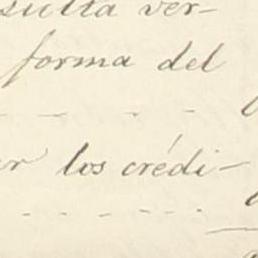 sulta ver-
forma del
los crédi-